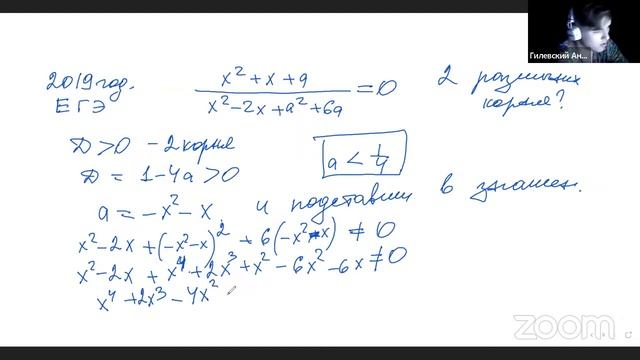 Гилевский Ан...
2019 год.
ЕГЭ
x² + x + a / x² - 2x + a² + 6a = 0
2 различных
корня?
D > 0 - 2 корня
D = 1 - 4a > 0
a < 1/4
a = -x² - x. и подставим в знамен.
x² - 2x + (-x² - x)² + 6(-x² - x) ≠ 0
x² - 2x + x⁴ + 2x³ + x² - 6x² - 6x ≠ 0
x⁴ + 2x³ - 4x²
zoom